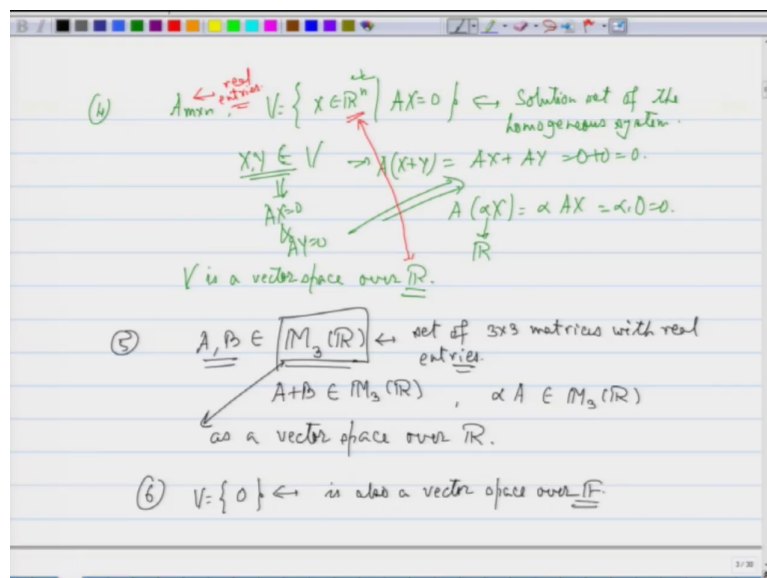 B I
real
entries.
④ Amxn, V = { X ∈ ℝⁿ | AX=0 } ← Solution set of the
homogeneous system.
X,Y ∈ V → A(X+Y) = AX + AY = 0+0 = 0.
⇓
AX=0
& AY=0
A(αX) = α AX = α.0=0.
ℝ
V is a vector space over ℝ.
⑤ A, B ∈ M₃(ℝ) ← set of 3x3 matrices with real
entries.
A+B ∈ M₃(ℝ) , αA ∈ M₃(ℝ)
as a vector space over ℝ.
⑥ V={0} ↔ is also a vector space over F.
3/30